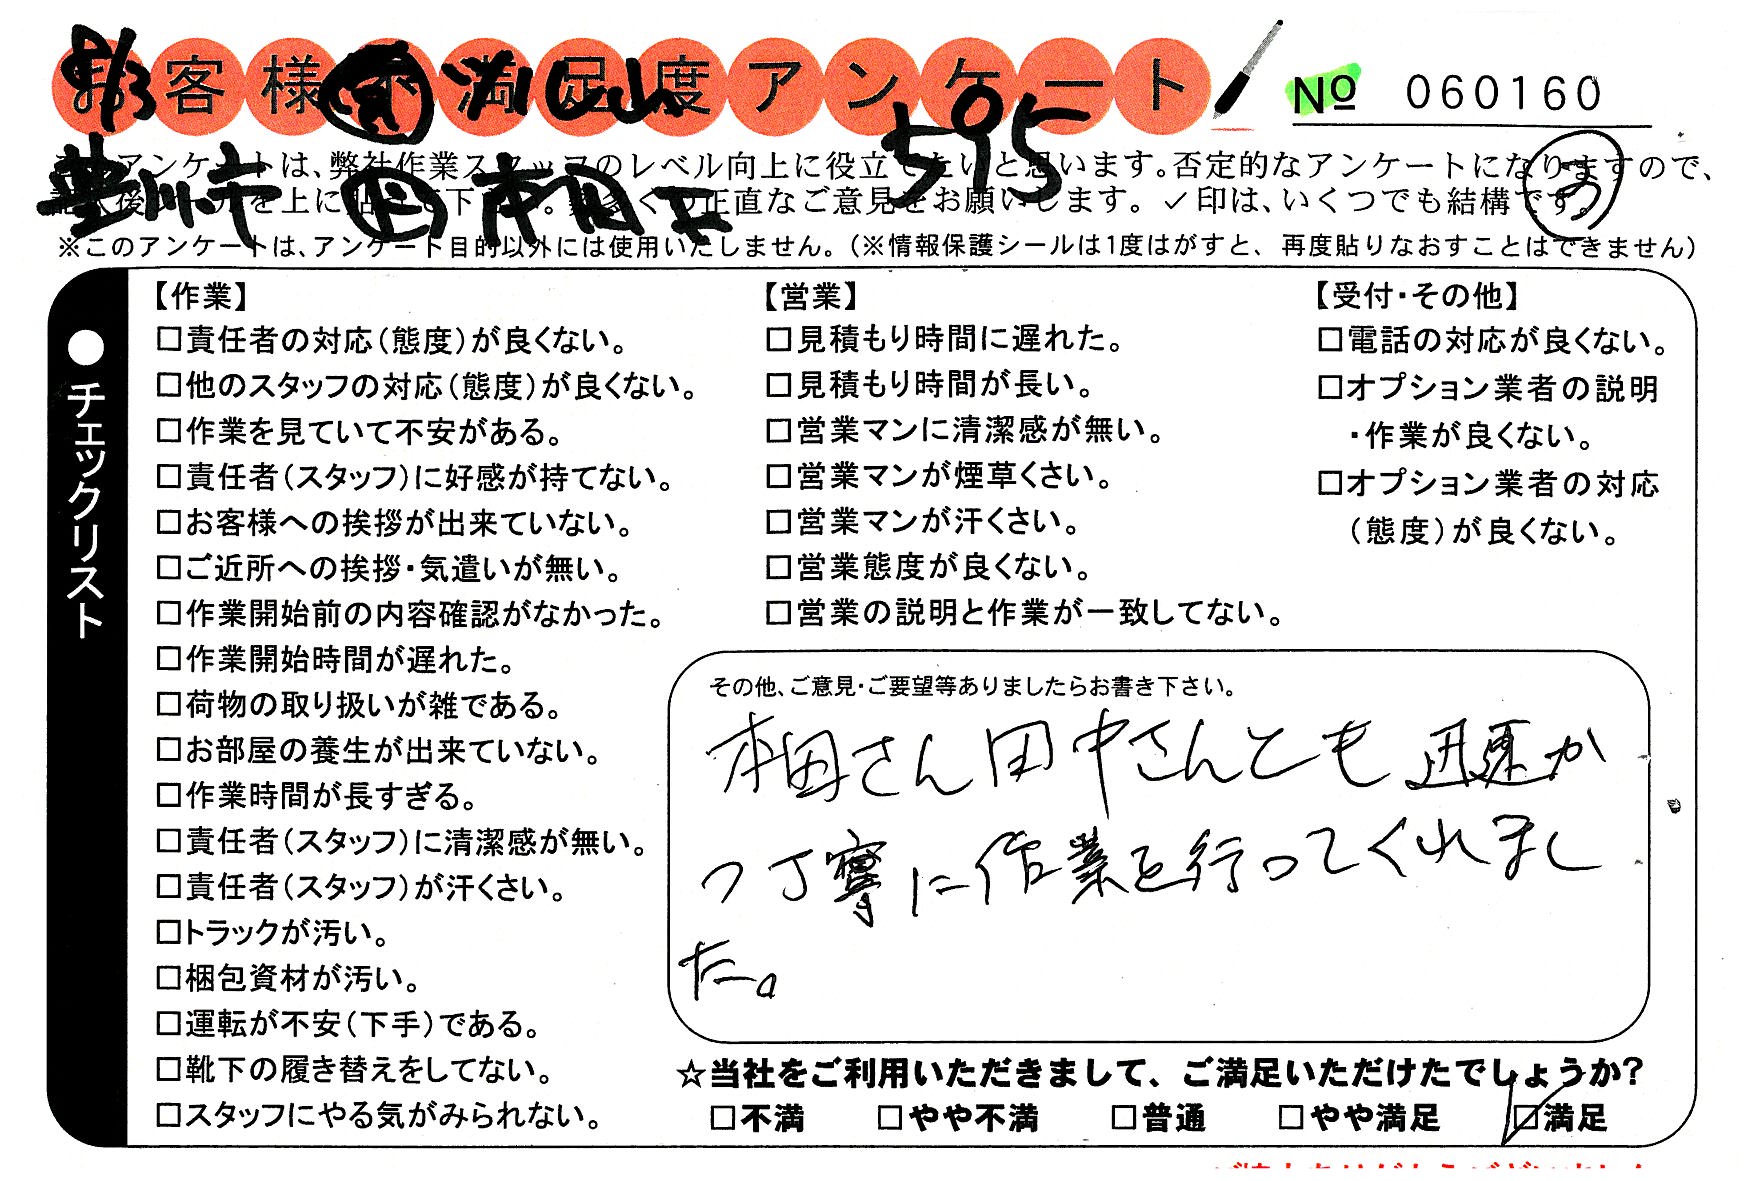 お客様不満足度アンケート
No 060160
595
豊川市
このアンケートは、弊社作業スタッフのレベル向上に役立てたいと思います。否定的なアンケートになりますので、
記入後シールを上に貼って下さい。数多くの正直なご意見をお願いします。✓印は、いくつでも結構です。
※このアンケートは、アンケート目的以外には使用いたしません。(※情報保護シールは1度はがすと、再度貼りなおすことはできません)
●チェックリスト
【作業】
□責任者の対応(態度)が良くない。
□他のスタッフの対応(態度)が良くない。
□作業を見ていて不安がある。
□責任者(スタッフ)に好感が持てない。
□お客様への挨拶が出来ていない。
□ご近所への挨拶・気遣いが無い。
□作業開始前の内容確認がなかった。
□作業開始時間が遅れた。
□荷物の取り扱いが雑である。
□お部屋の養生が出来ていない。
□作業時間が長すぎる。
□責任者(スタッフ)に清潔感が無い。
□責任者(スタッフ)が汗くさい。
□トラックが汚い。
□梱包資材が汚い。
□運転が不安(下手)である。
□靴下の履き替えをしてない。
□スタッフにやる気がみられない。
【営業】
□見積もり時間に遅れた。
□見積もり時間が長い。
□営業マンに清潔感が無い。
□営業マンが煙草くさい。
□営業マンが汗くさい。
□営業態度が良くない。
□営業の説明と作業が一致してない。
【受付・その他】
□電話の対応が良くない。
□オプション業者の説明
・作業が良くない。
□オプション業者の対応
(態度)が良くない。
その他、ご意見・ご要望等ありましたらお書き下さい。
本田さん田中さんとも迅速か
つ丁寧に作業を行ってくれまし
た。
☆当社をご利用いただきまして、ご満足いただけたでしょうか?
□不満 □やや不満 □普通 □やや満足 ☑満足